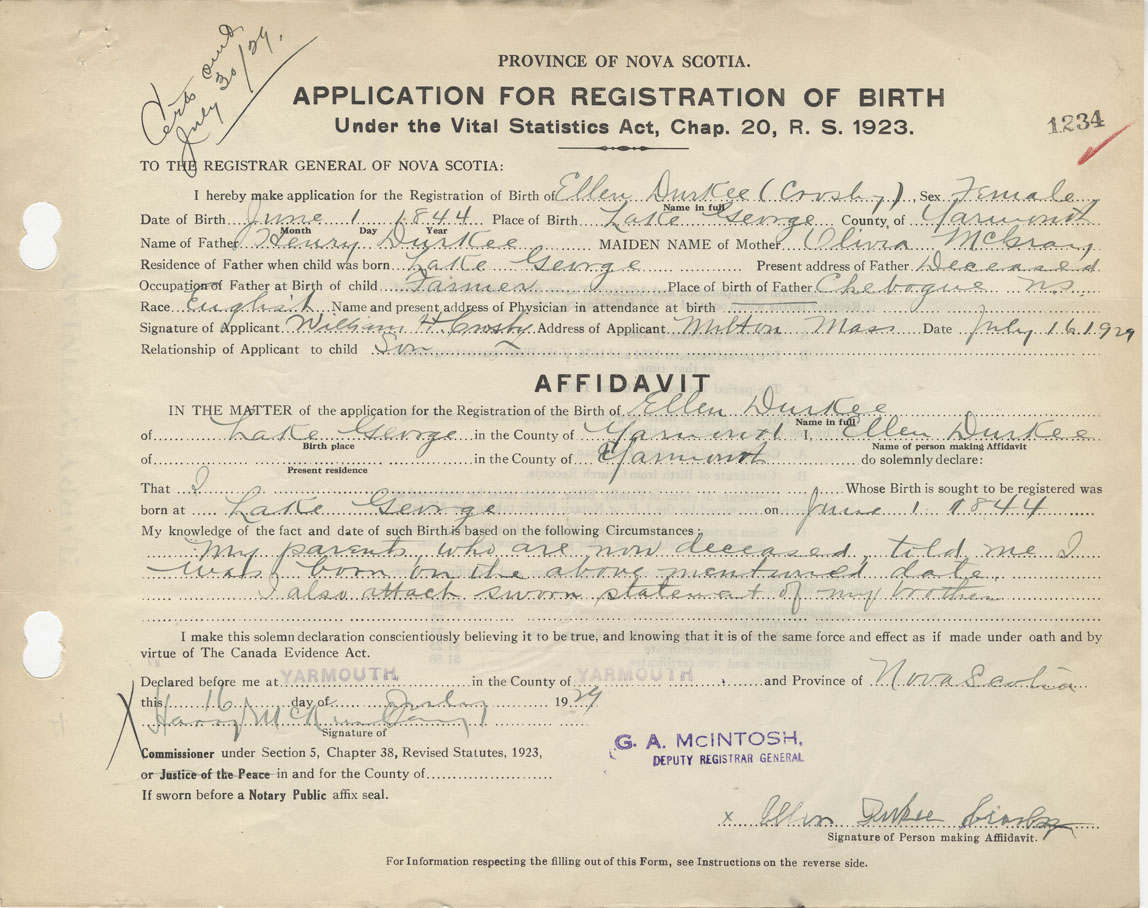 Certs out
July 30/29.
PROVINCE OF NOVA SCOTIA.
APPLICATION FOR REGISTRATION OF BIRTH
Under the Vital Statistics Act, Chap. 20, R. S. 1923.
1234
TO THE REGISTRAR GENERAL OF NOVA SCOTIA:
I hereby make application for the Registration of Birth of Ellen Durkee (Crosby) Sex Female
Name in full
Date of Birth June 1 1844 Place of Birth Lake George County of Yarmouth
Month Day Year
Name of Father Henry Durkee MAIDEN NAME of Mother Olivia McGray
Residence of Father when child was born Lake George Present address of Father Deceased
Occupation of Father at Birth of child Farmer Place of birth of Father Chebogue N.S.
Race English Name and present address of Physician in attendance at birth
Signature of Applicant William H. Crosby Address of Applicant Milton Mass Date July 16 1929
Relationship of Applicant to child Son
AFFIDAVIT
IN THE MATTER of the application for the Registration of the Birth of Ellen Durkee
Name in full
of Lake George in the County of Yarmouth I, Ellen Durkee
Birth place Name of person making Affidavit
of in the County of Yarmouth do solemnly declare:
Present residence
That I Whose Birth is sought to be registered was
born at Lake George on June 1 1844
My knowledge of the fact and date of such Birth is based on the following Circumstances:
My parents, who are now deceased, told me I
was born on the above mentioned date.
I also attach sworn statement of my brother
I make this solemn declaration conscientiously believing it to be true, and knowing that it is of the same force and effect as if made under oath and by
virtue of The Canada Evidence Act.
Declared before me at YARMOUTH in the County of YARMOUTH and Province of Nova Scotia
this 16 day of July 1929
Harry
Signature of
Commissioner under Section 5, Chapter 38, Revised Statutes, 1923,
or Justice of the Peace in and for the County of
If sworn before a Notary Public affix seal.
G. A. McINTOSH,
DEPUTY REGISTRAR GENERAL
x Ellen Durkee Crosby
Signature of Person making Affidavit.
For Information respecting the filling out of this Form, see Instructions on the reverse side.